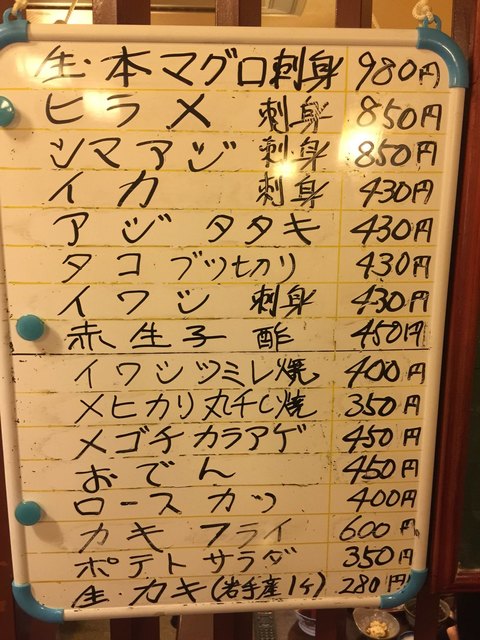 生・本マグロ刺身 980円
ヒラメ 刺身 850円
シマアジ 刺身 850円
イカ 刺身 430円
アジ タタキ 430円
タコ ブツ切り 430円
イワシ 刺身 430円
赤生子 酢 450円
イワシツミレ焼 400円
メヒカリ丸干し焼 350円
メゴチカラアゲ 450円
おでん 450円
ロースカツ 400円
カキフライ 600円
ポテトサラダ 350円
生・カキ(岩手産1ケ) 280円